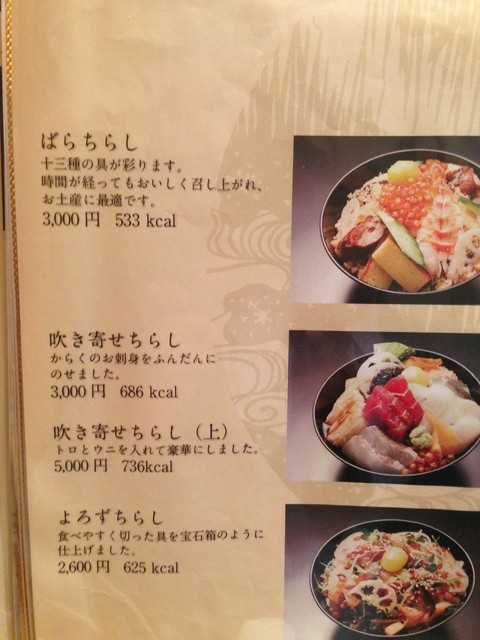 ばらちらし
十三種の具が彩ります。
時間が経ってもおいしく召し上がれ、
お土産に最適です。
3,000 円　533 kcal
吹き寄せちらし
からくのお刺身をふんだんに
のせました。
3,000 円　686 kcal
吹き寄せちらし（上）
トロとウニを入れて豪華にしました。
5,000 円　736kcal
よろずちらし
食べやすく切った具を宝石箱のように
仕上げました。
2,600 円　625 kcal